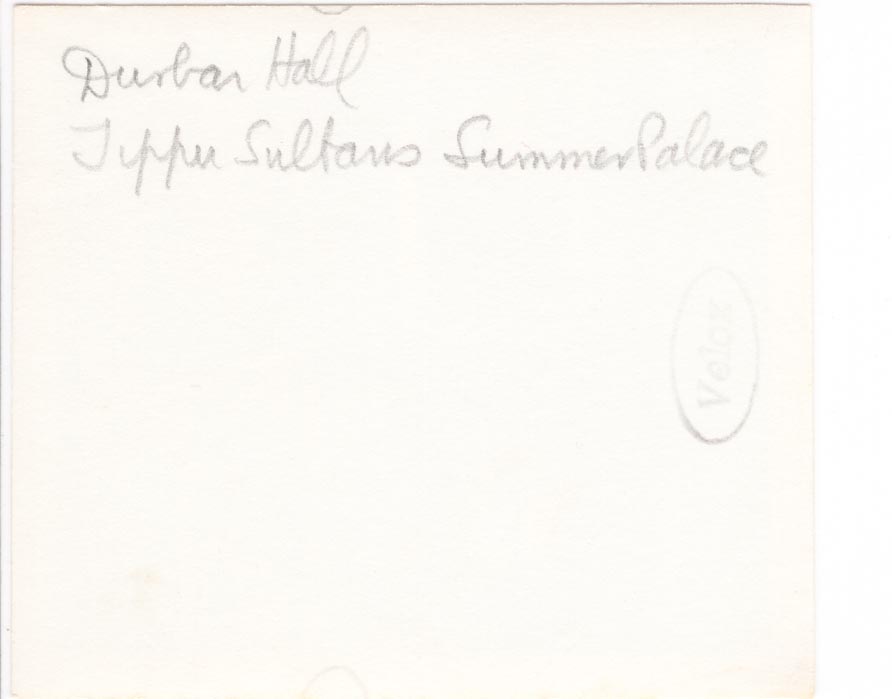 Durbar Hall
Tippu Sultans Summer Palace
Velox